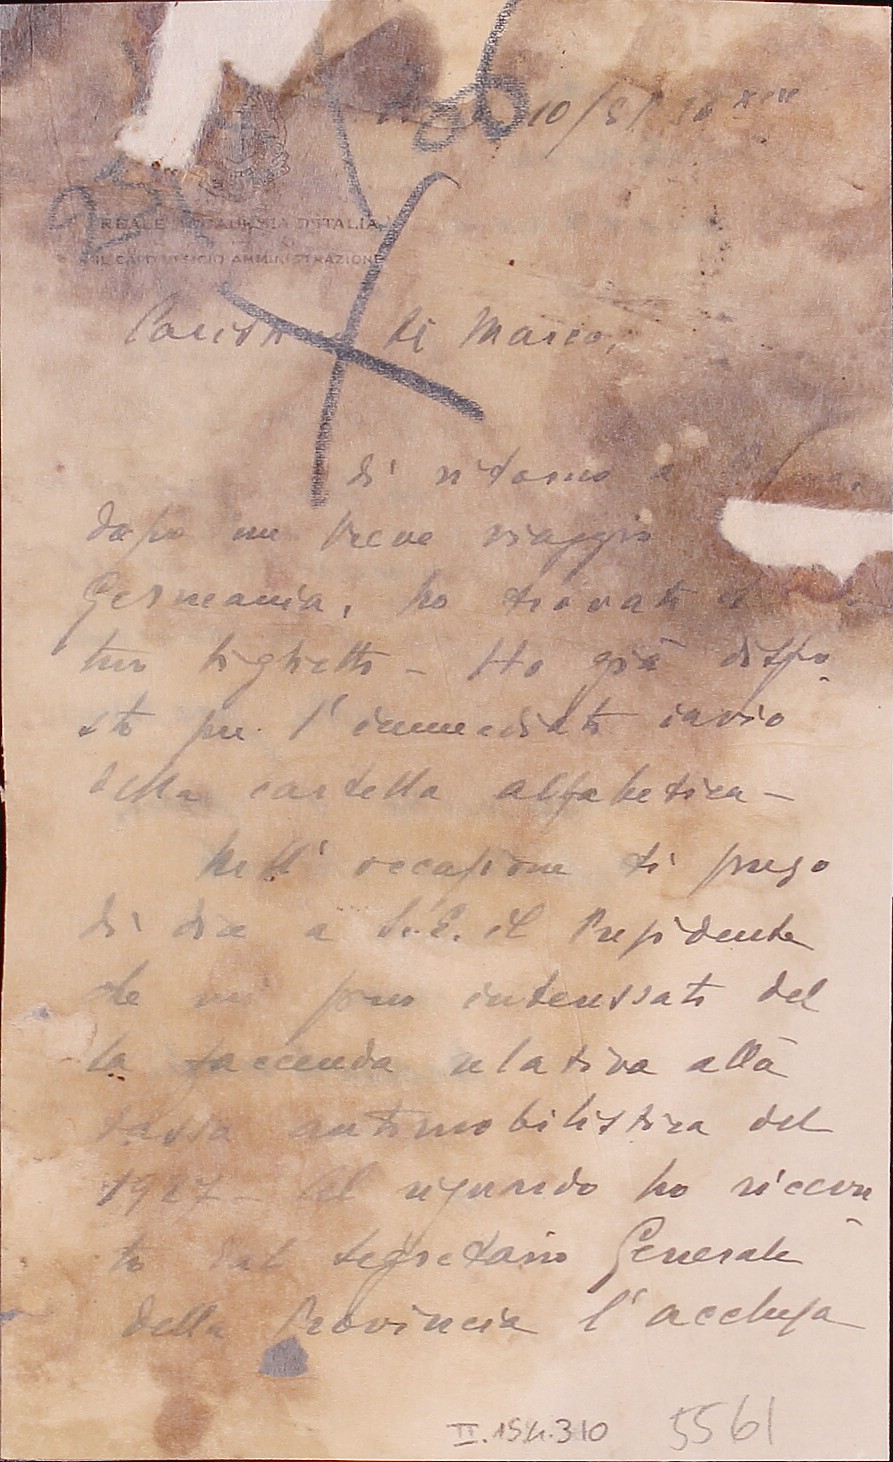 10/5/36 XIV
REALE ACCADEMIA D'ITALIA
IL CAPO UFFICIO AMMINISTRAZIONE
Carissimo di Marco,
di ritorno a
dopo un breve viaggio
Germania, ho trovato il
tuo biglietto - Ho già dispo
sto per l'immediato invio
della cartella alfabetica -
Nell'occasione ti prego
di dire a S. E. il Presidente
che mi sono interessato del
la faccenda relativa alla
tassa automobilistica del
1927 - Al riguardo ho ricevu
to dal Segretario Generale
della Provincia l'acclusa
II.154.310 5561